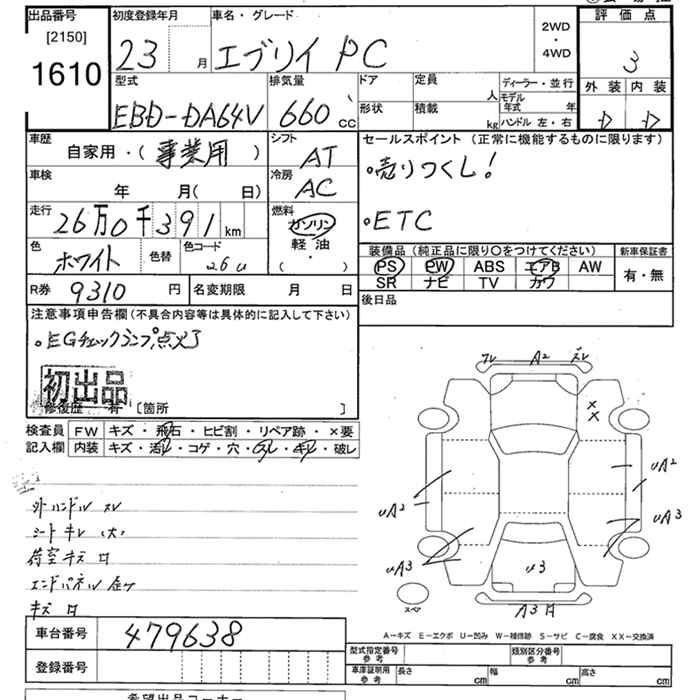 出品番号 初度登録年月 車名・グレード 2WD 評価点
[2150] 23 月 エブリイ PC ・ 3
1610 4WD
型式 排気量 ドア 定員 人 ディーラー・並行 外装 内装
EBD-DA64V 660 cc 形状 積載 kg モデル年式 年 D D
ハンドル 左・右
車歴 自家用・(事業用) シフト AT セールスポイント (正常に機能するものに限ります)
車検 年 月( 日) 冷房 AC 売りつくし!
走行 26万0千391km 燃料 ガソリン ETC
色 ホワイト 色替 色コード 26u 軽油
・
( )
装備品 (純正品に限り○をつけてください) 新車保証書
PS PW ABS エアB AW 有・無
SR ナビ TV カワ
R券 9310 円 名変期限 月 日 後日品
注意事項申告欄(不具合内容等は具体的に記入して下さい)
EGチェックランプ点灯
初出品
修復歴 有 [箇所 ]
検査員 FW キズ・飛石・ヒビ割・リペア跡・×要
記入欄 内装 キズ・汚れ・コゲ・穴・スレ・キレ・破レ
ワレ A2 ズレ
××
uA2 uA2
uA3
uA3 u3
スペア A3日
外ハンドル スレ
シートキレ (大)
荷室キズ 日
エンドパネル
キズ 日
A-キズ E-エクボ U-凹み W-補修跡 S-サビ C-腐食 XX-交換済
車台番号 479638
型式指定番号 参考 類別区分番号 参考
登録番号
車庫証明用 参考 長さ cm 幅 cm 高さ cm
希望出品コーナー